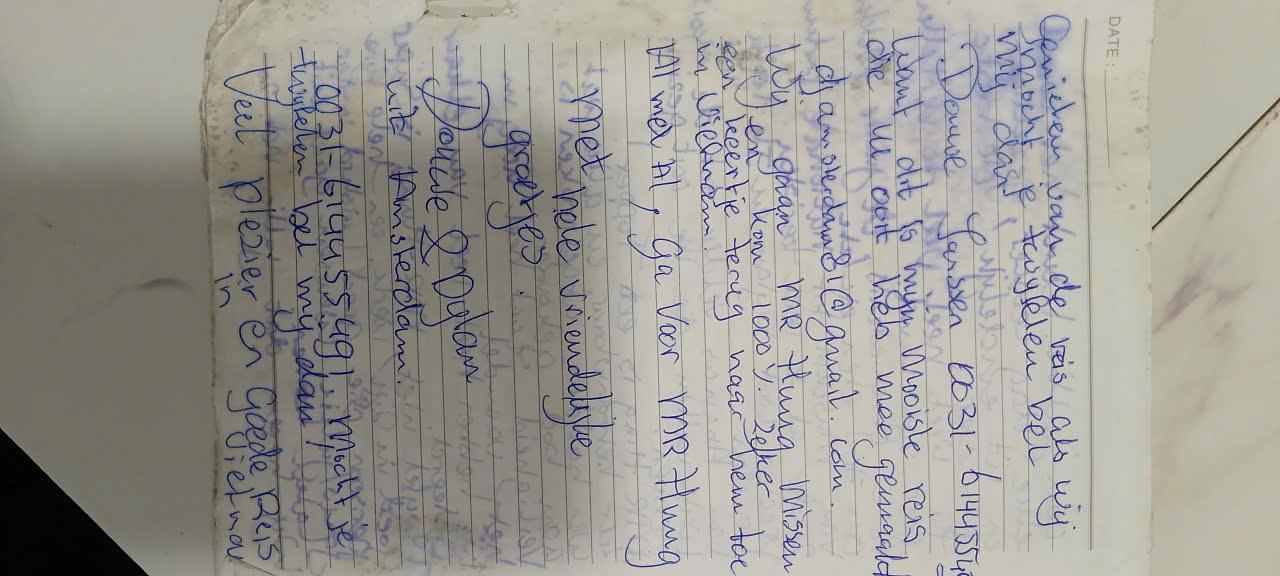 DATE:
Genieten van de reis als wij
mocht je twijfelen bel
mij dan!
Douwe Jansen 0031-6144554
Want dit is mijn mooiste reis
die ik ooit heb mee gemaakt
djamsterdam81@gmail.com.
Wij gaan MR Hung Missen
en kom 1000% zeker
een keertje terug naar hem toe
in Vietnam.
Al met Al, ga voor MR Hung
Met hele vriendelijke
groetjes.
Douwe & Dylan
uit Amsterdam.
0031-614455491. Mocht je
twijfelen bel mij dan!
Veel plezier en Goede Reis
in Vietnam